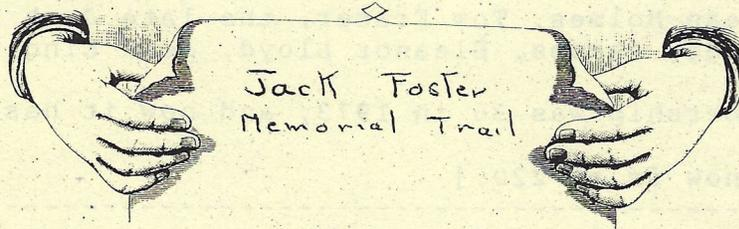 Jack Foster
Memorial Trail